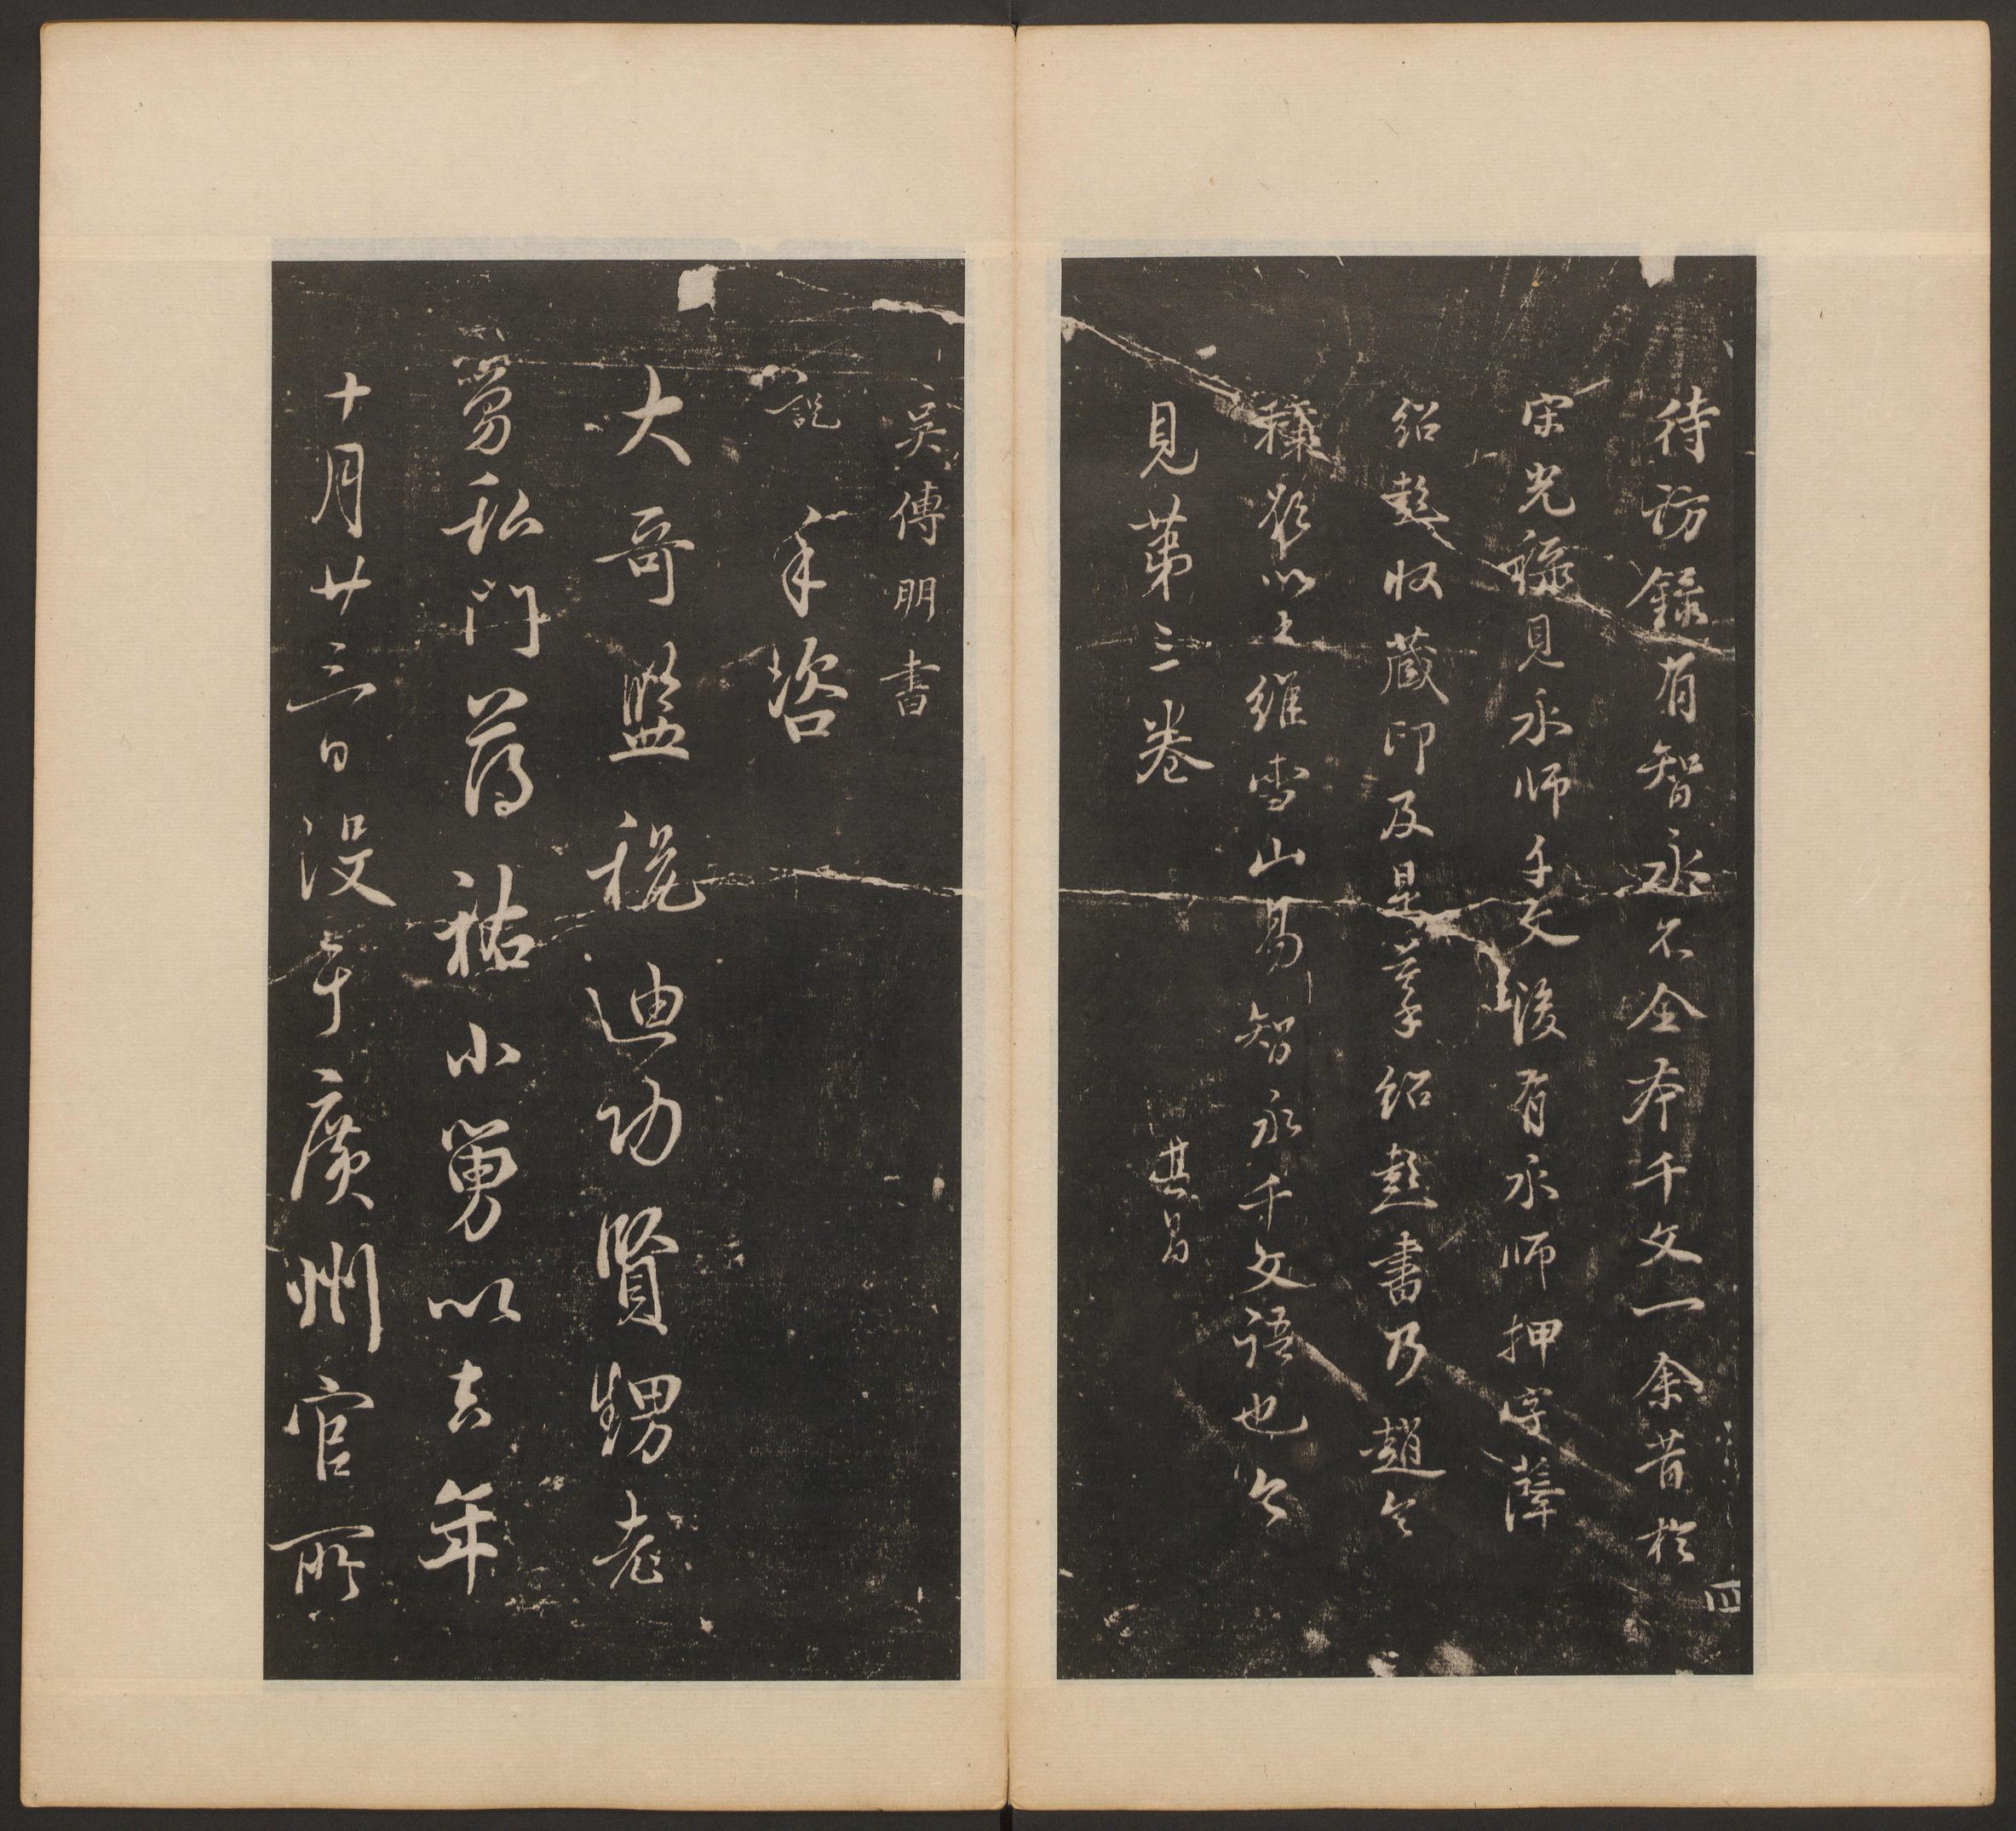 待訪錄有智永不全本千文一余昔於
宋光祿見永師千文後有永師押字薛
紹彭收藏印及是摹紹彭書乃趙令
穰所以之維雪山易智永千文語也今
見第三卷 其昌
四
吳傅明書
說 手咨
大哥監稅迪功賢甥老
舅私門薄祜小舅以去年
十月廿三日沒于廣州官所